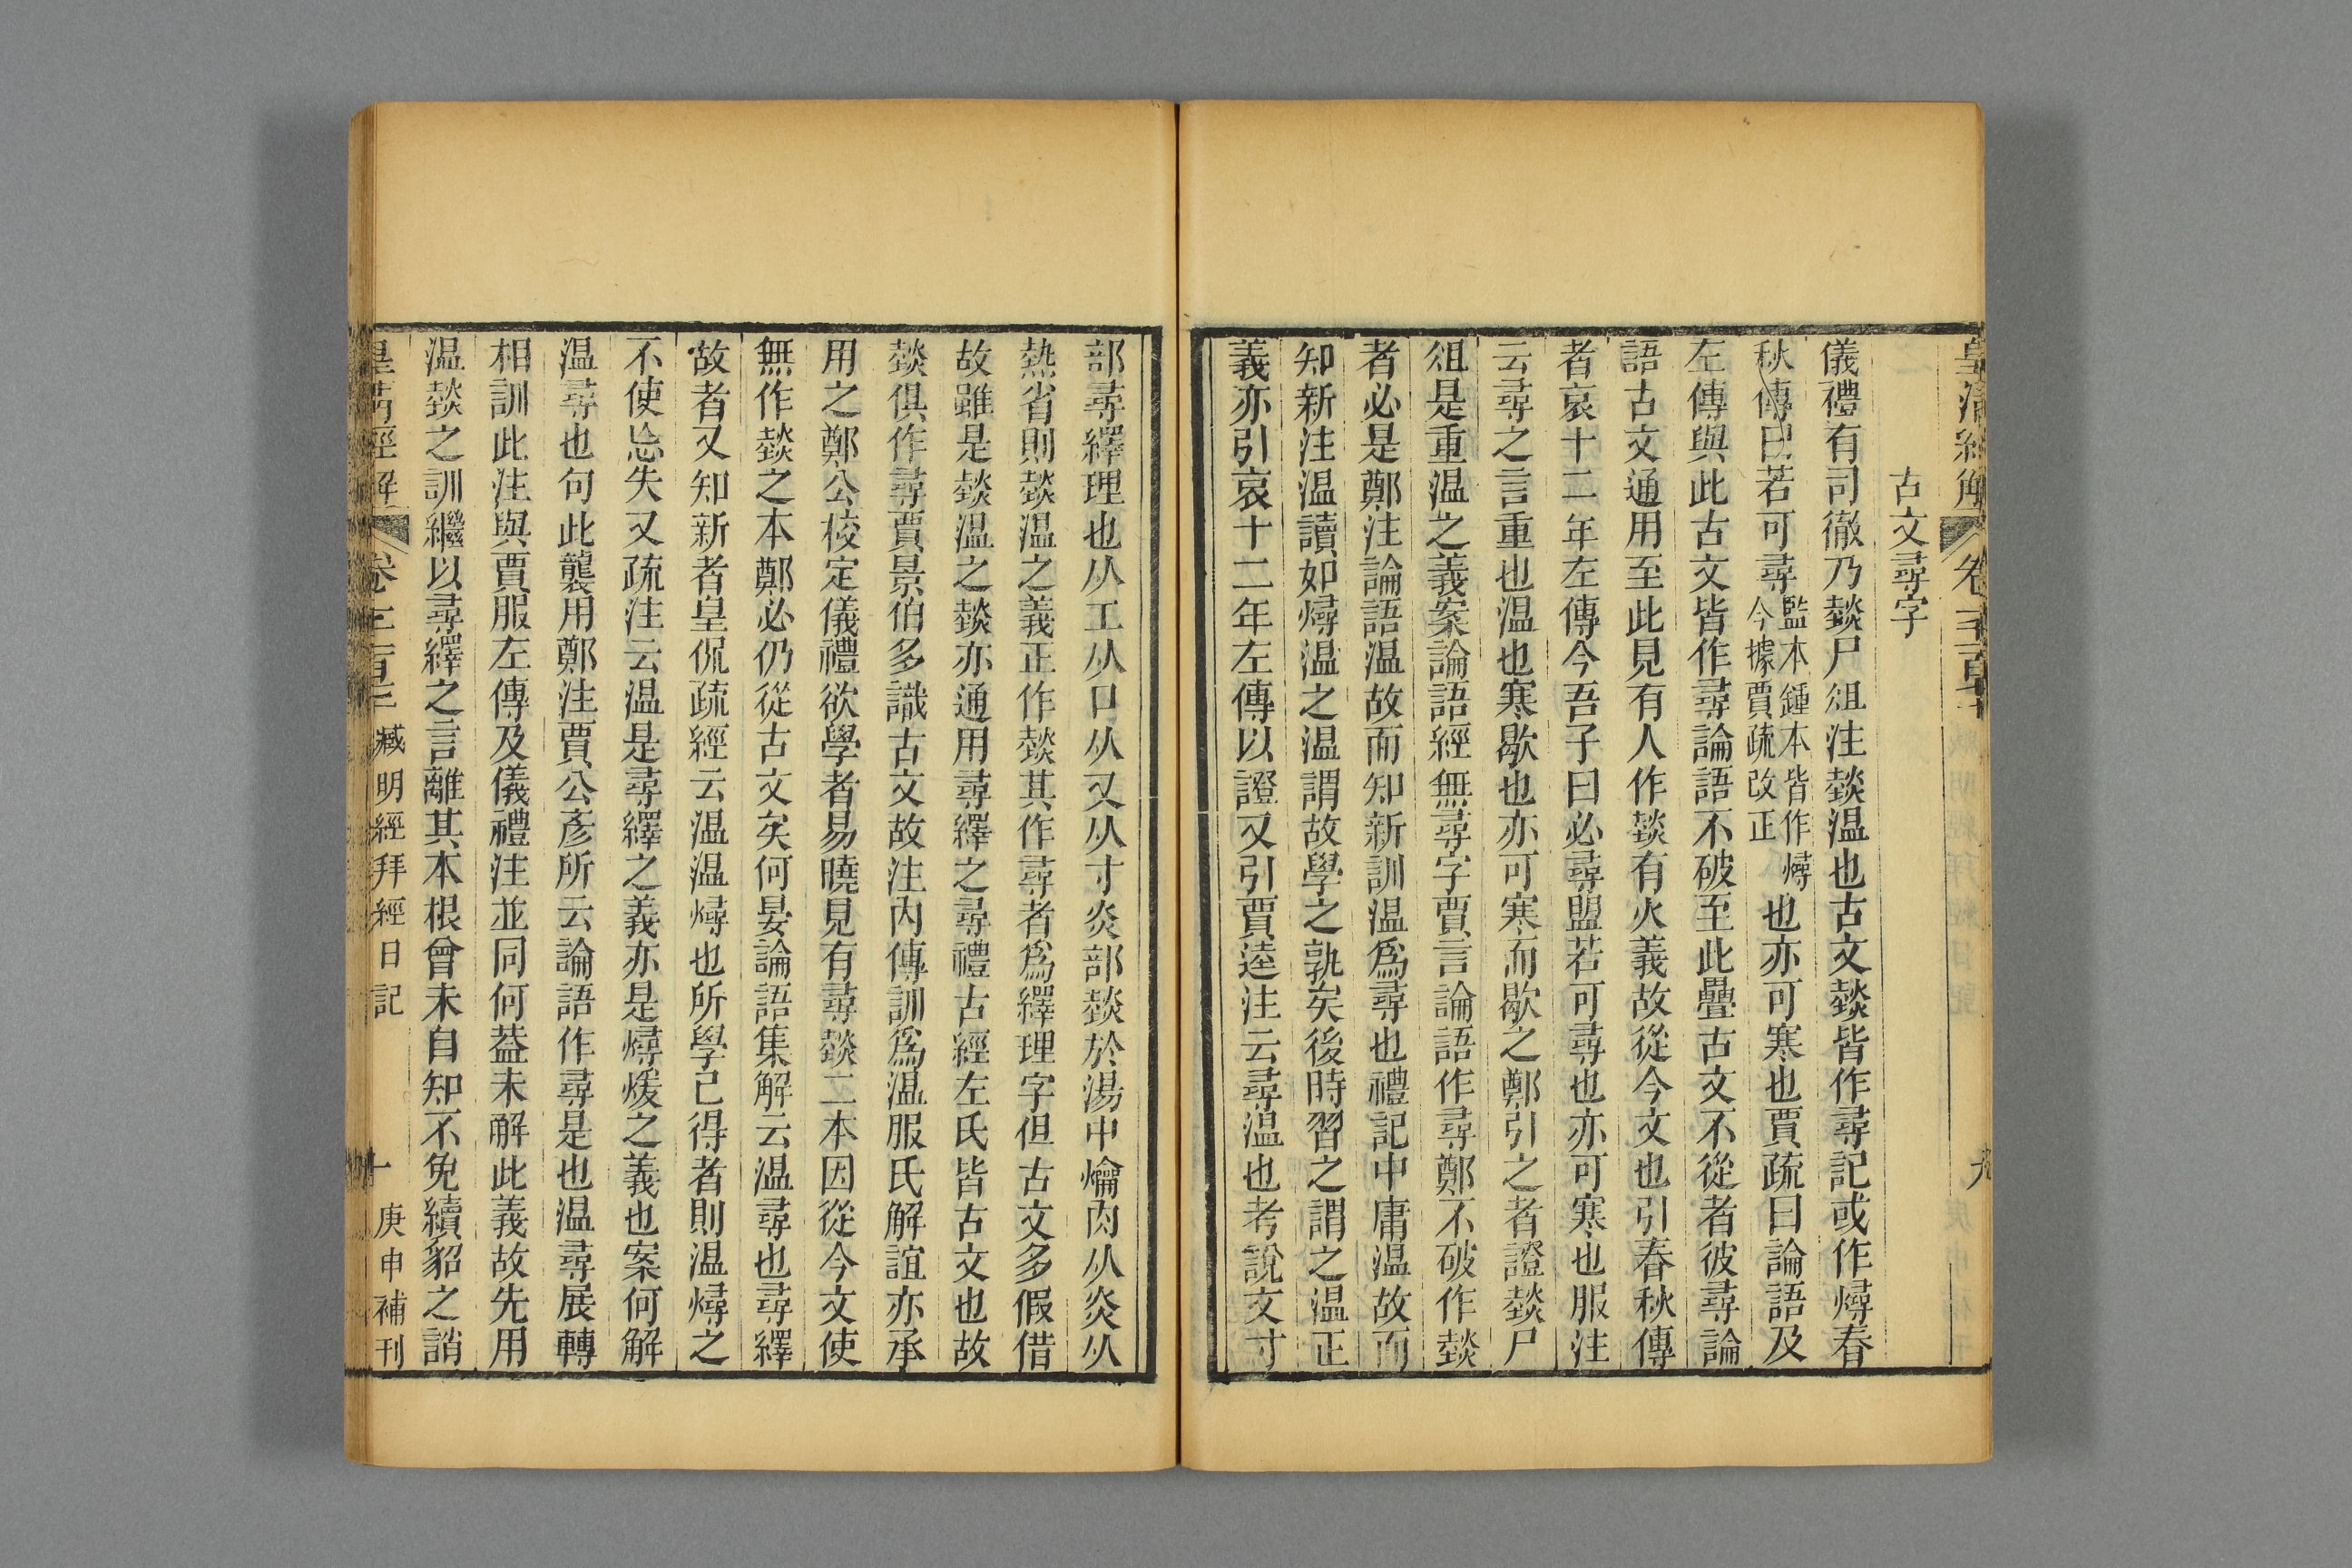 古文尋字
儀禮有司徹乃燅尸俎注燅温也古文燅皆作尋記或作燖春
秋傳曰若可尋監本鍾本皆作燖今據賈疏改正也亦可寒也賈疏曰論語及
左傳與此古文皆作尋論語不破至此疊古文不從者彼尋論
語古文通用至此見有人作燅有火義故從今文也引春秋傳
者哀十二年左傳今吾子曰必尋盟若可尋也亦可寒也服注
云尋之言重也温也寒歇也亦可寒而歇之鄭引之者證燅尸
俎是重温之義案論語經無尋字賈言論語作尋鄭不破作燅
者必是鄭注論語温故而知新訓温爲尋也禮記中庸温故而
知新注温讀如燖温之温謂故學之孰矣後時習之謂之温正
義亦引哀十二年左傳以證又引賈逵注云尋温也考說文寸
部尋繹理也从工从口从又从寸炎部燅於湯中爚肉从炎从
熱省則燅温之義正作燅其作尋者爲繹理字但古文多假借
故雖是燅温之燅亦通用尋繹之尋禮古經左氏皆古文也故
燅俱作尋賈景伯多識古文故注内傳訓爲温服氏解誼亦承
用之鄭公校定儀禮欲學者易曉見有尋燅二本因從今文使
無作燅之本鄭必仍從古文矣何晏論語集解云温尋也尋繹
故者又知新者皇侃疏經云温温燖也所學已得者則温燖之
不使忘失又疏注云温是尋繹之義亦是燖煖之義也案何解
温尋也句此襲用鄭注賈公彥所云論語作尋是也温尋展轉
相訓此注與賈服左傳及儀禮注並同何葢未解此義故先用
温燅之訓繼以尋繹之言離其本根曾未自知不免續貂之誚
皇清經解 卷 臧明經拜經日記 十 庚申補刊